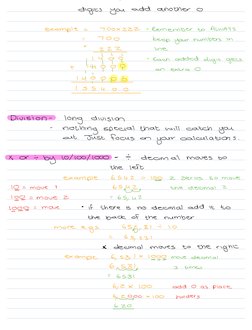 digits you add another 0
example = 700 × 222 · Remember to ALWAYS
= 700 keep your numbers in
× 222 line
1400 · Each added digit gets
14000 an extra 0
140000
155400
Division - long division
· nothing special that will catch you
out. Just focus on your calculations.
× or ÷ by 10/100/1000 - ÷ decimal moves to
the left
example 6542 ÷ 100 2 zeros so move
10 = move 1 6542 the decimal 2
100 = move 2 = 65.42
1000 = move · if there is no decimal add it to
the back of the number
more e.gs ÷ 10
× decimal moves to the right
example 6.581 × 1000 move decimal
6.581 3 times
= 6581
6.2 × 100 add 0 as place
6.2 × 100 holders
620